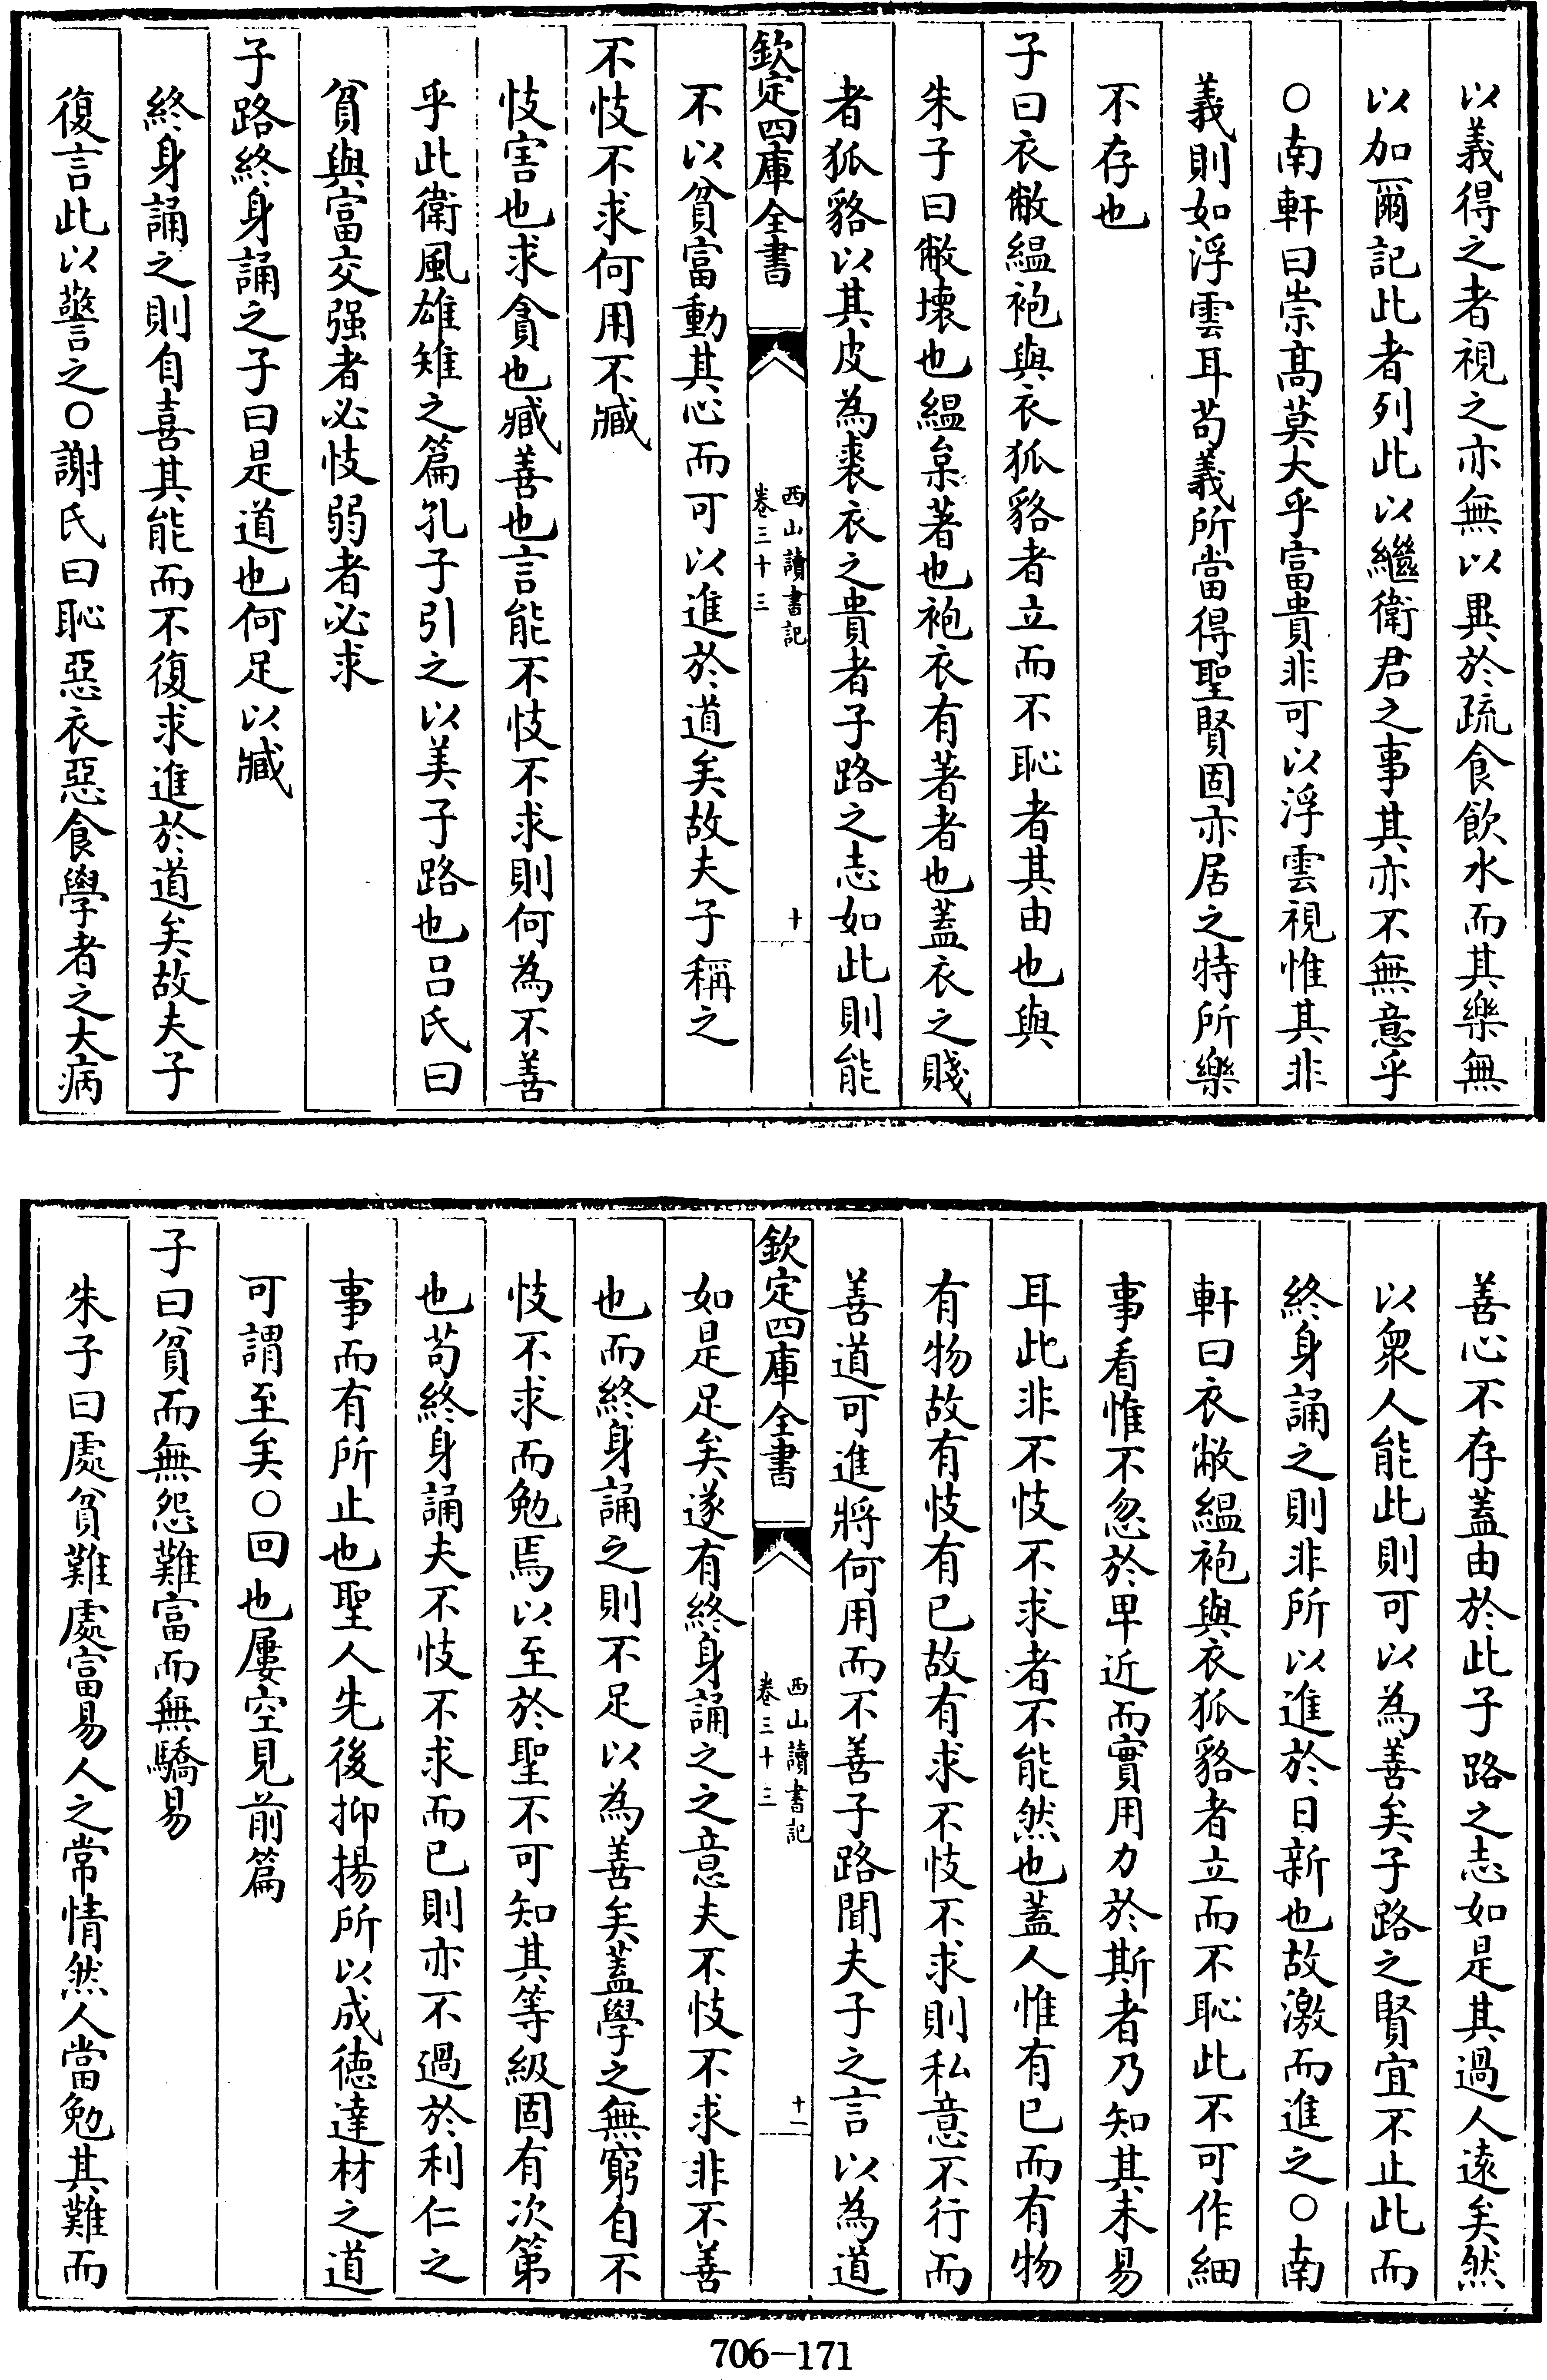 以義得之者視之亦無以異於疏食飲水而其樂無
以加爾記此者列此以繼衛君之事其亦不無意乎
○南軒曰崇髙莫大乎富貴非可以浮雲視惟其非
義則如浮雲耳苟義所當得聖賢固亦居之特所樂
不存也
子曰衣敝緼袍與衣狐貉者立而不恥者其由也與
朱子曰敝壊也緼枲著也袍衣有著者也蓋衣之賤
者狐貉以其皮為裘衣之貴者子路之志如此則能
欽定四庫全書
西山讀書記
卷三十三
十
不以貧富動其心而可以進於道矣故夫子稱之
不忮不求何用不臧
忮害也求貪也臧善也言能不忮不求則何為不善
乎此衛風雄雉之篇孔子引之以美子路也呂氏曰
貧與富交强者必忮弱者必求
子路終身誦之子曰是道也何足以臧
終身誦之則自喜其能而不復求進於道矣故夫子
復言此以警之○謝氏曰恥惡衣惡食學者之大病
善心不存蓋由於此子路之志如是其過人遠矣然
以衆人能此則可以為善矣子路之賢宜不止此而
終身誦之則非所以進於日新也故激而進之○南
軒曰衣敝緼袍與衣狐貉者立而不恥此不可作細
事看惟不忽於卑近而實用力於斯者乃知其未易
耳此非不忮不求者不能然也蓋人惟有已而有物
有物故有忮有已故有求不忮不求則私意不行而
善道可進將何用而不善子路聞夫子之言以為道
欽定四庫全書
西山讀書記
卷三十三
十一
如是足矣遂有終身誦之之意夫不忮不求非不善
也而終身誦之則不足以為善矣蓋學之無窮自不
忮不求而勉焉以至於聖不可知其等級固有次第
也苟終身誦夫不忮不求而已則亦不過於利仁之
事而有所止也聖人先後抑揚所以成德達材之道
可謂至矣○回也屢空見前篇
子曰貧而無怨難富而無驕易
朱子曰處貧難處富易人之常情然人當勉其難而
706-171